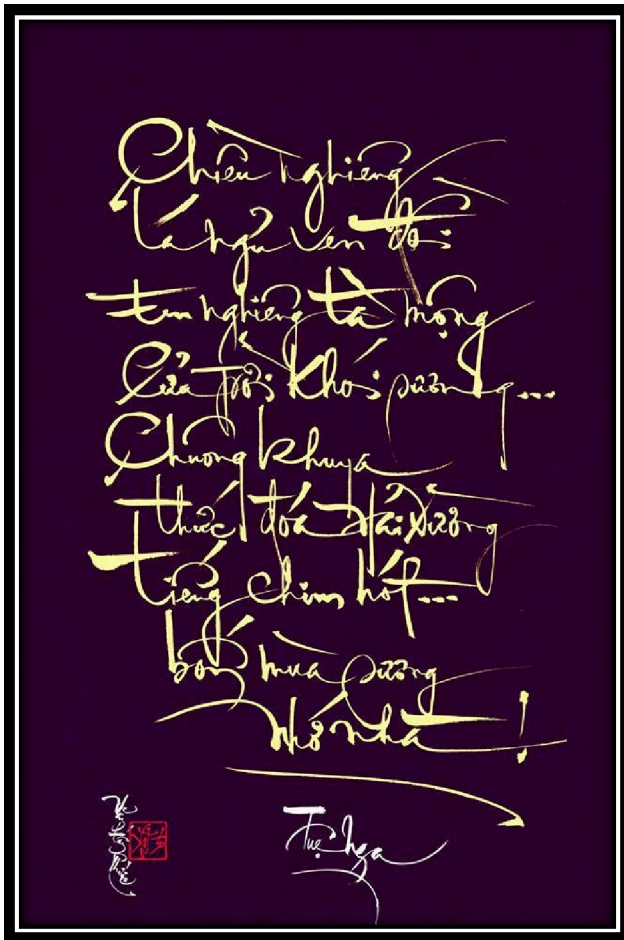 Chiều nghiêng
lá ngủ ven đồi
tim nghiêng tà mộng
Của trời khói sương...
Chuông khuya
thức đóa Hải Đường
Tiếng chim hót...
bóng mùa sương
Nhớ nhà!
Tuệ Nga